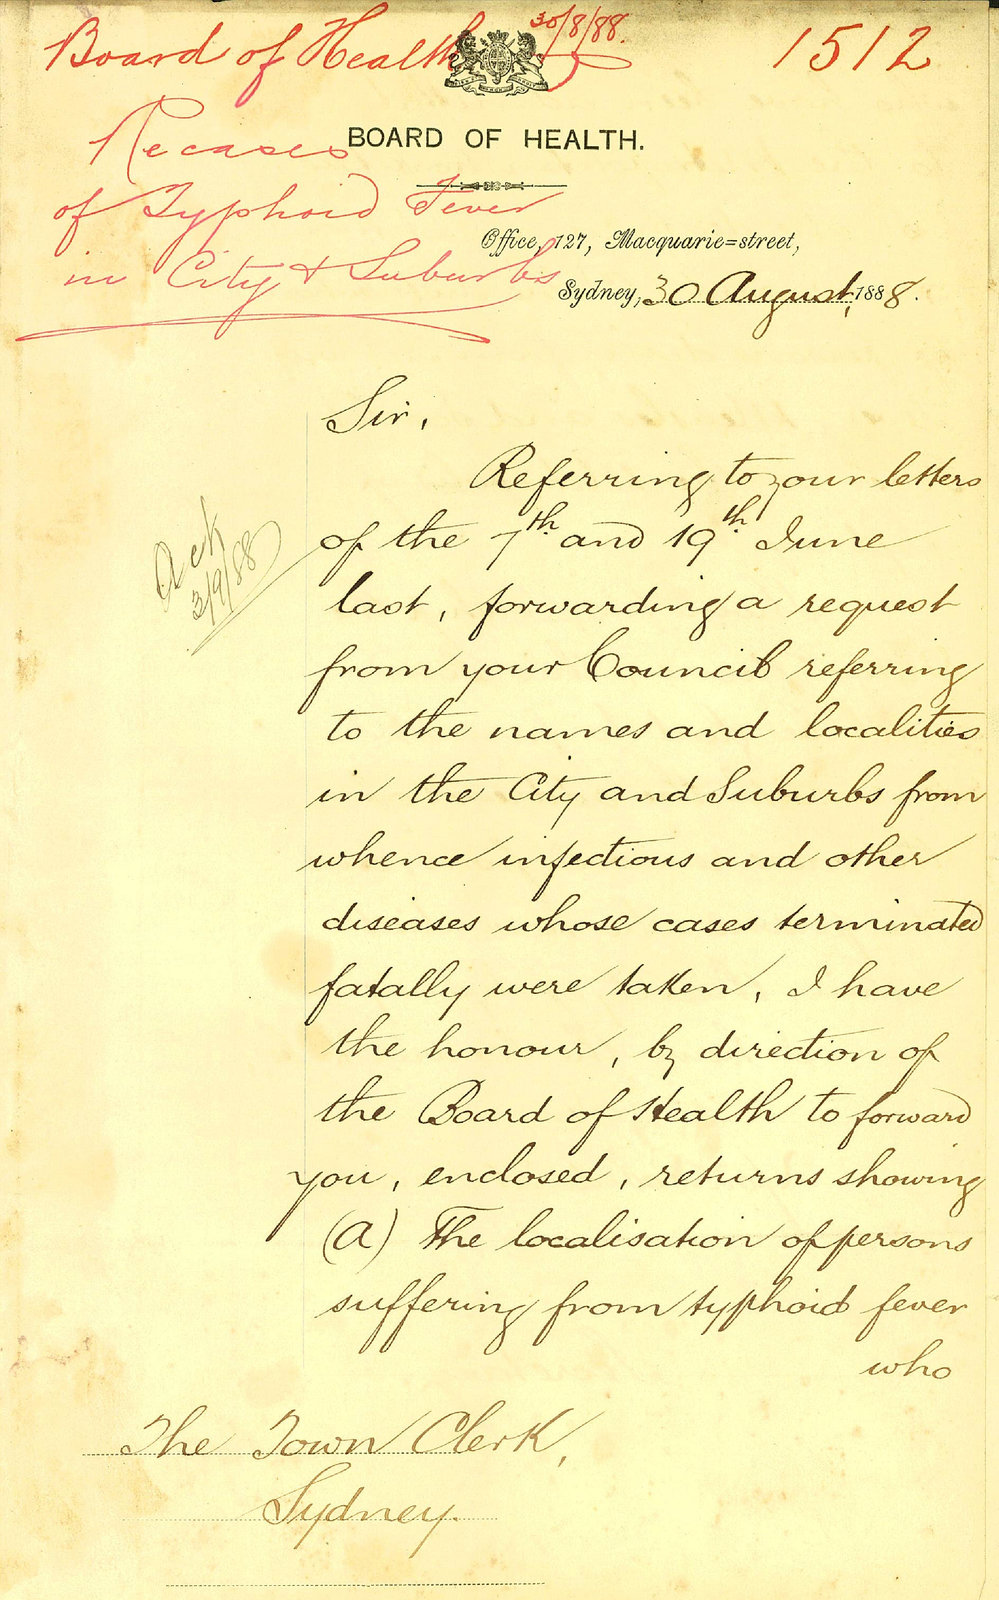 Board of Health 30/8/88.
1512
Re cases
of Typhoid Fever
in City & Suburbs
BOARD OF HEALTH.
Office, 127, Macquarie=street,
Sydney, 30 August, 1888.
Sir,
Referring to your letters
of the 7th. and 19th. June
last, forwarding a request
from your Council referring
to the names and localities
in the City and Suburbs from
whence infectious and other
diseases whose cases terminated
fatally were taken, I have
the honour, by direction of
the Board of Health to forward
you, enclosed, returns showing
(A) The localisation of persons
suffering from typhoid fever
who
Ack
3/9/88
The Town Clerk,
Sydney.